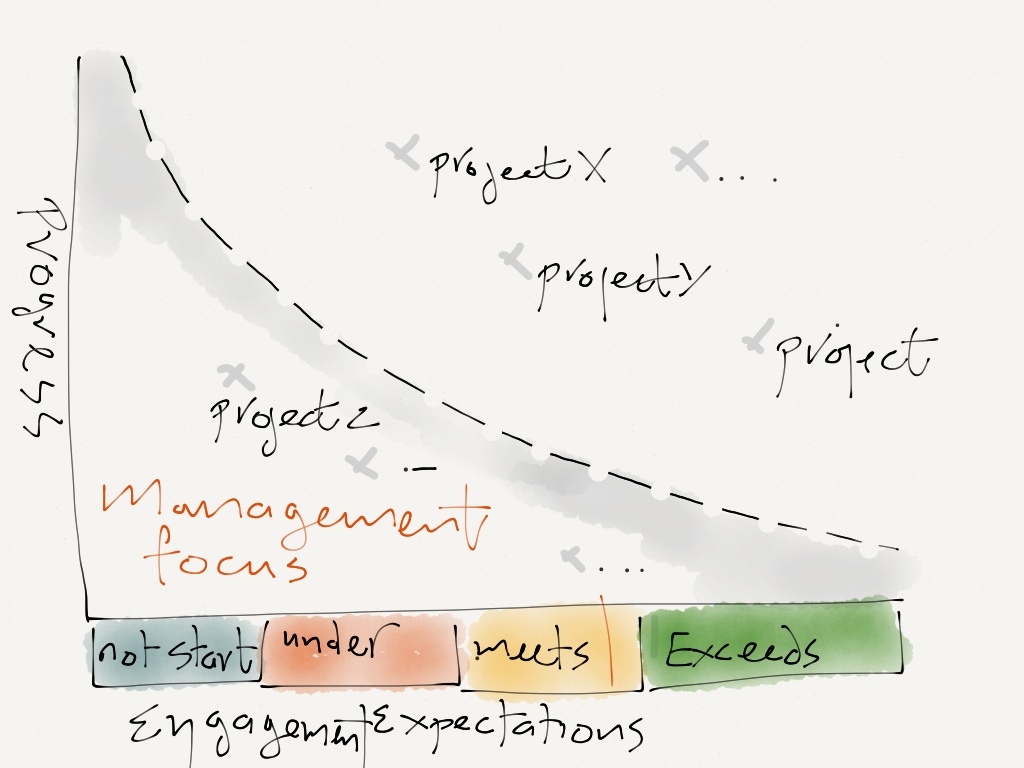 project X
. . .
project Y
project
Progress
project Z
. –
Management
focus
. . .
not start
under
meets
Exceeds
Engagement Expectations